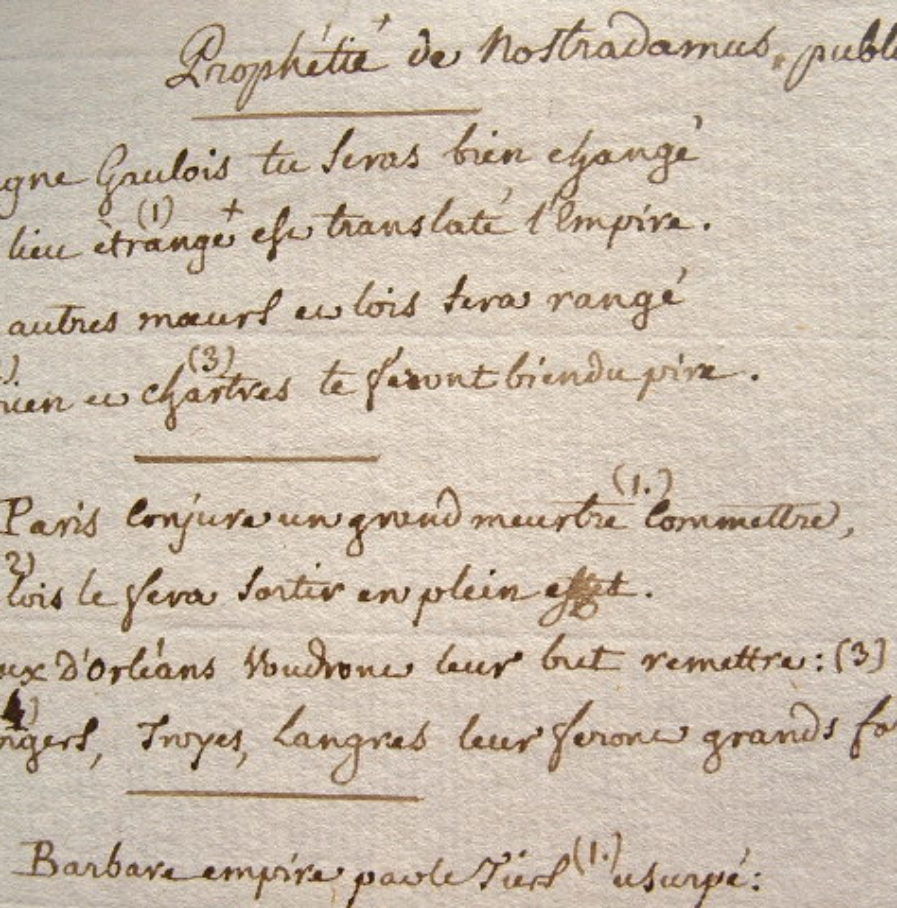 Prophétie de Nostradamus, publ
gne Gaulois tu seras bien changé
lieu étrange (1) + est translaté l'Empire.
autres mœurs et lois sera rangé
uen et Chartres (3) te feront bien du pire.
Paris conjure un grand meurtre (1.) Commettre,
2)
lois le fera sortir en plein effet.
ux d'Orléans voudront leur but remettre : (3)
4)
ngers, Troyes, Langres leur feront grands fo
Barbare empire par le Tiers (1.) usurpé :